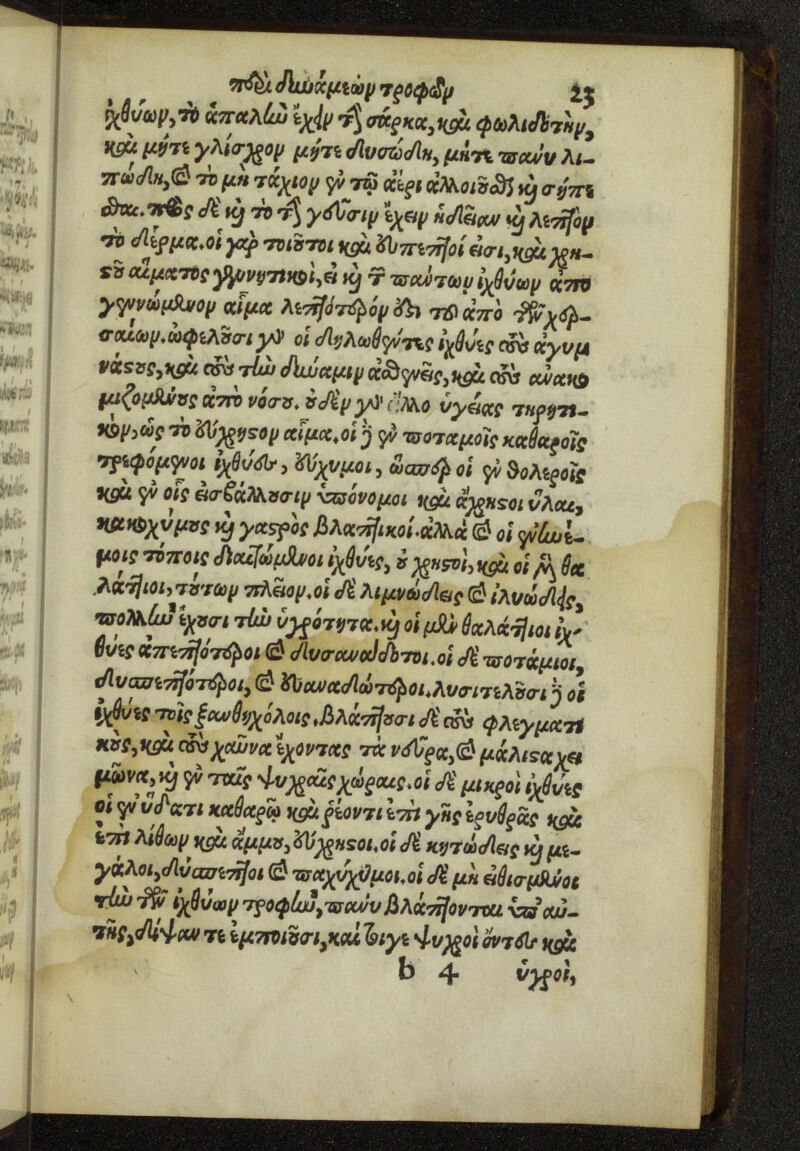 περὶ δυνάμεων τροφῶν 23
ἰχθύων, τὸ ἁπαλὴν ἔχειν τὴν σάρκα, καὶ φωλιδότην,
καὶ μήτε γλίσχρον μήτε δυσώδη, μήτε πάνυ λι-
πώδη, καὶ τὸ μὴ τάχιον ἐν τῷ ἀέρι ἀλλοιοῦσθαι καὶ σήπε
σθαι. πρὸς δὲ καὶ τὸ τὴν γεῦσιν ἔχειν ἡδεῖαν καὶ λεπτὸν
τὸ δέρμα. οἱ γὰρ τοιοῦτοι καὶ εὔπεπτοί εἰσι, καὶ χρη-
στοῦ αἵματος γεννητικοὶ, εἰ καὶ τὸ πάντων ἰχθύων ἀπο
γεννώμενον αἷμα λεπτότερόν ἐστι τοῦ ἀπὸ τῶν χερ-
σαίων. ὠφελοῦσι γοῦν οἱ δηλωθέντες ἰχθύες τοὺς ἀγυμ
νάστους, καὶ τοὺς τὴν δύναμιν ἀσθενεῖς, καὶ τοὺς ἀνακο
μιζομένους ἀπὸ νόσου. οὐδὲν γοῦν ἄλλο ὑγείας τηρητι-
κὸν, ὡς τὸ εὔχρηστον αἷμα. οἱ δὲ ἐν ποταμοῖς καθαροῖς
τρεφόμενοι ἰχθύες, εὔχυμοι, ὥσπερ οἱ ἐν θολεροῖς
καὶ ἐν οἷς εἰσβάλλουσιν ὑπόνομοι καὶ ἄχρηστοι ὗλαι,
κακοχύμους καὶ γαστρὸς βλαπτικοί. ἀλλὰ καὶ οἱ ἐν ἠνέ-
μοις τόποις διαιτώμενοι ἰχθύες, οὐ χρηστοὶ, καὶ οἱ μὲν θα
λάττιοι, τούτων πλεῖον. οἱ δὲ λιμνώδεις καὶ ἰλυώδεις,
πολλὴν ἔχουσι τὴν ὑγρότητα. καὶ οἱ μὲν θαλάττιοι ἰχ-
θύες ἀπεπτότεροι καὶ δυσανάδοτοι. οἱ δὲ ποτάμιοι,
δυσπεπτότεροι, καὶ εὐαναδώτεροι. λυσιτελοῦσι δὲ οἱ
ἰχθύες τοῖς ξανθηχόλοις. βλάπτουσι δὲ τοὺς φλεγματι
κοὺς, καὶ τοὺς χαῦνα ἔχοντας τὰ νεῦρα, καὶ μάλιστα χει
μῶνα, καὶ ἐν ταῖς ψυχραῖς χώραις. οἱ δὲ μικροὶ ἰχθύες
οἱ ἐν ὕδατι καθαρῷ καὶ ῥέοντι ἐπὶ γῆς ἐρυθρᾶς καὶ
ἐπὶ λίθων καὶ ἄμμου, εὔχρηστοι. οἱ δὲ κητώδεις καὶ με-
γάλοι, δύσπεπτοι καὶ παχύχυμοι. οἱ δὲ μὴ εἰθισμένοι
τὴν τῶν ἰχθύων τροφὴν, πάνυ βλάπτονται ὑπ' αὐ-
τῆς, δίψαν τε ἐμποιοῦσι, καίτοιγε ψυχροὶ ὄντες καὶ
b 4 ὑγροὶ,